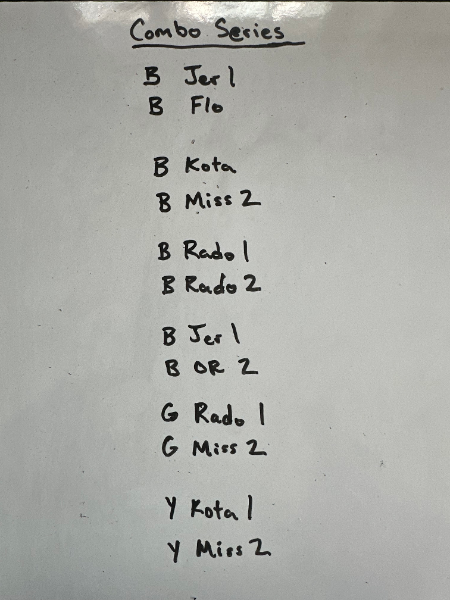 Combo Series
B Jer 1
B Flo
B Kota
B Miss 2
B Rado 1
B Rado 2
B Jer 1
B OR 2
G Rado 1
G Miss 2
Y Kota 1
Y Miss 2